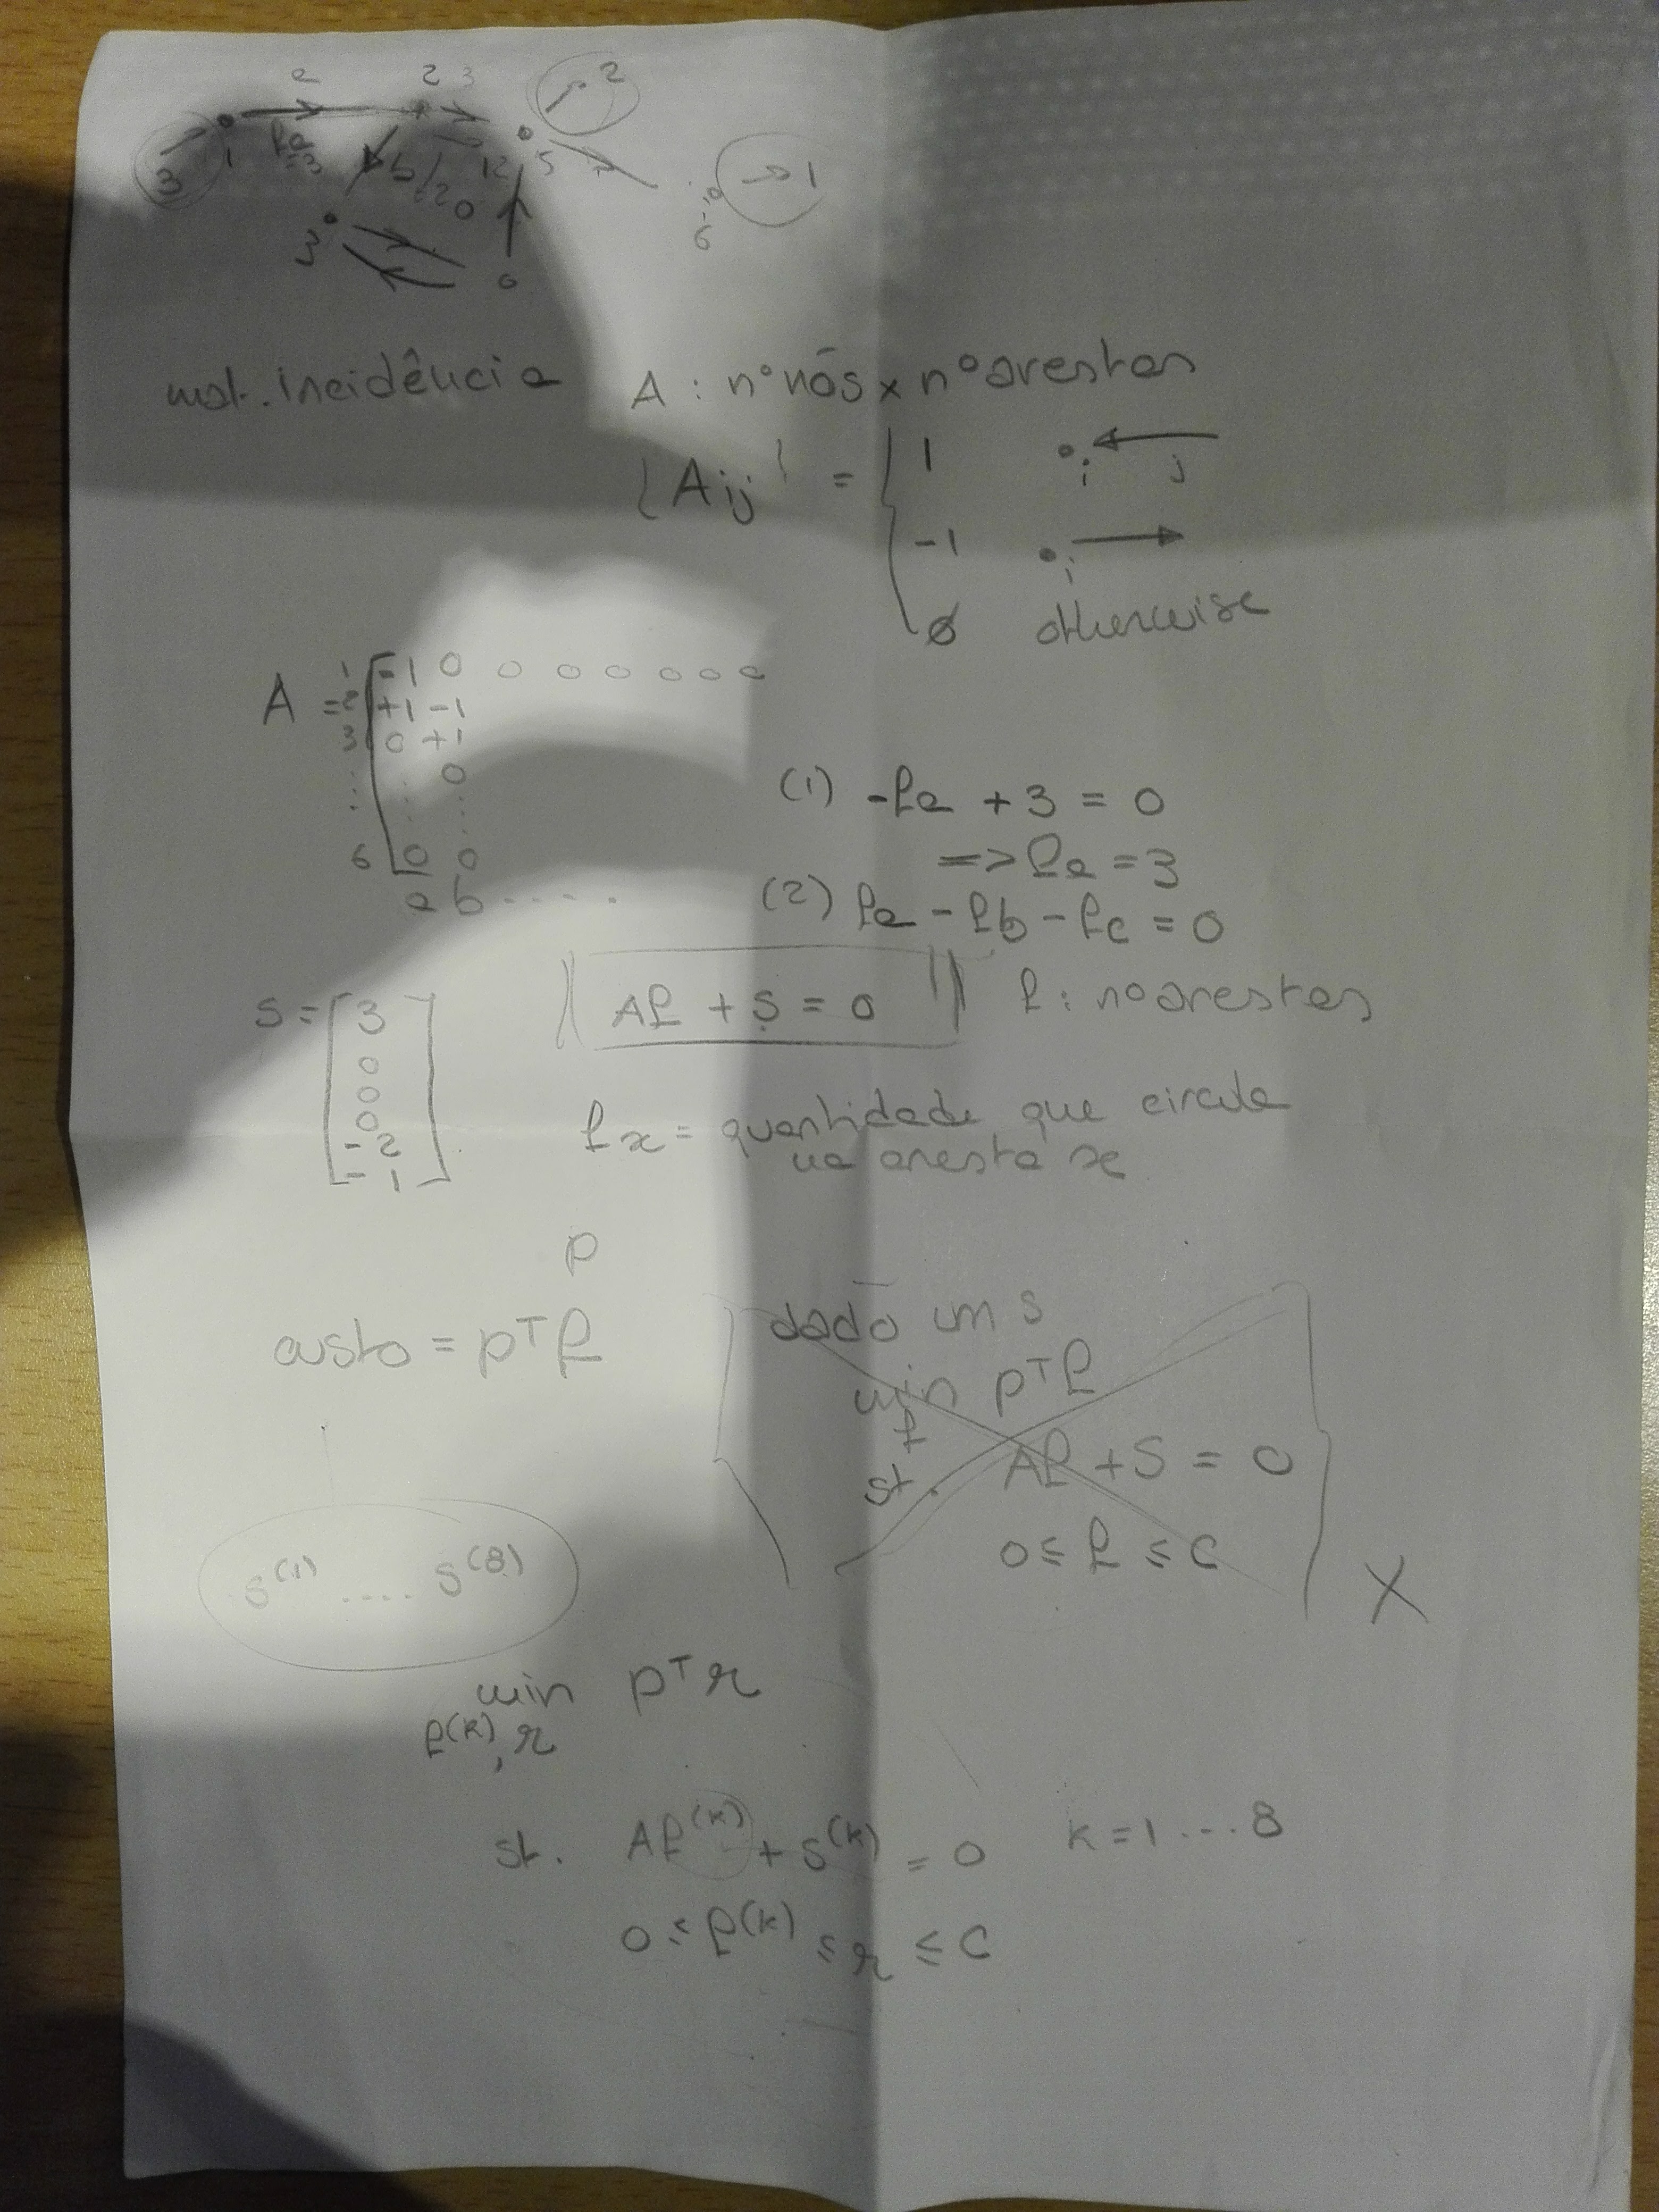 a 2 3 2
3 1 fa =3 b 12 5 1
20
3 6
mat. incidência A : nº nós x nº arestas
[Aij] = { 1 i j
-1 i
0 otherwise
A = 1 [ -1 0 0 0 0 0 0 0
2 +1 -1
3 0 +1
: . 0
: . :
6 0 0
a b . . . .
(1) -fa + 3 = 0
=> fa = 3
(2) fa - fb - fc = 0
s = [ 3 0 0 0 -2 -1 ]
Af + S = 0 f : nº arestas
fx = quantidade que circula
na aresta x
p
custo = pᵀf
dado um s
min pᵀf
f
st. Af + S = 0
0 ≤ f ≤ c
X
s⁽¹⁾ .... s⁽⁸⁾
min pᵀr
f⁽ᵏ⁾, r
st. Af⁽ᵏ⁾ + s⁽ᵏ⁾ = 0 k = 1 ... 8
0 ≤ f⁽ᵏ⁾ ≤ r ≤ c